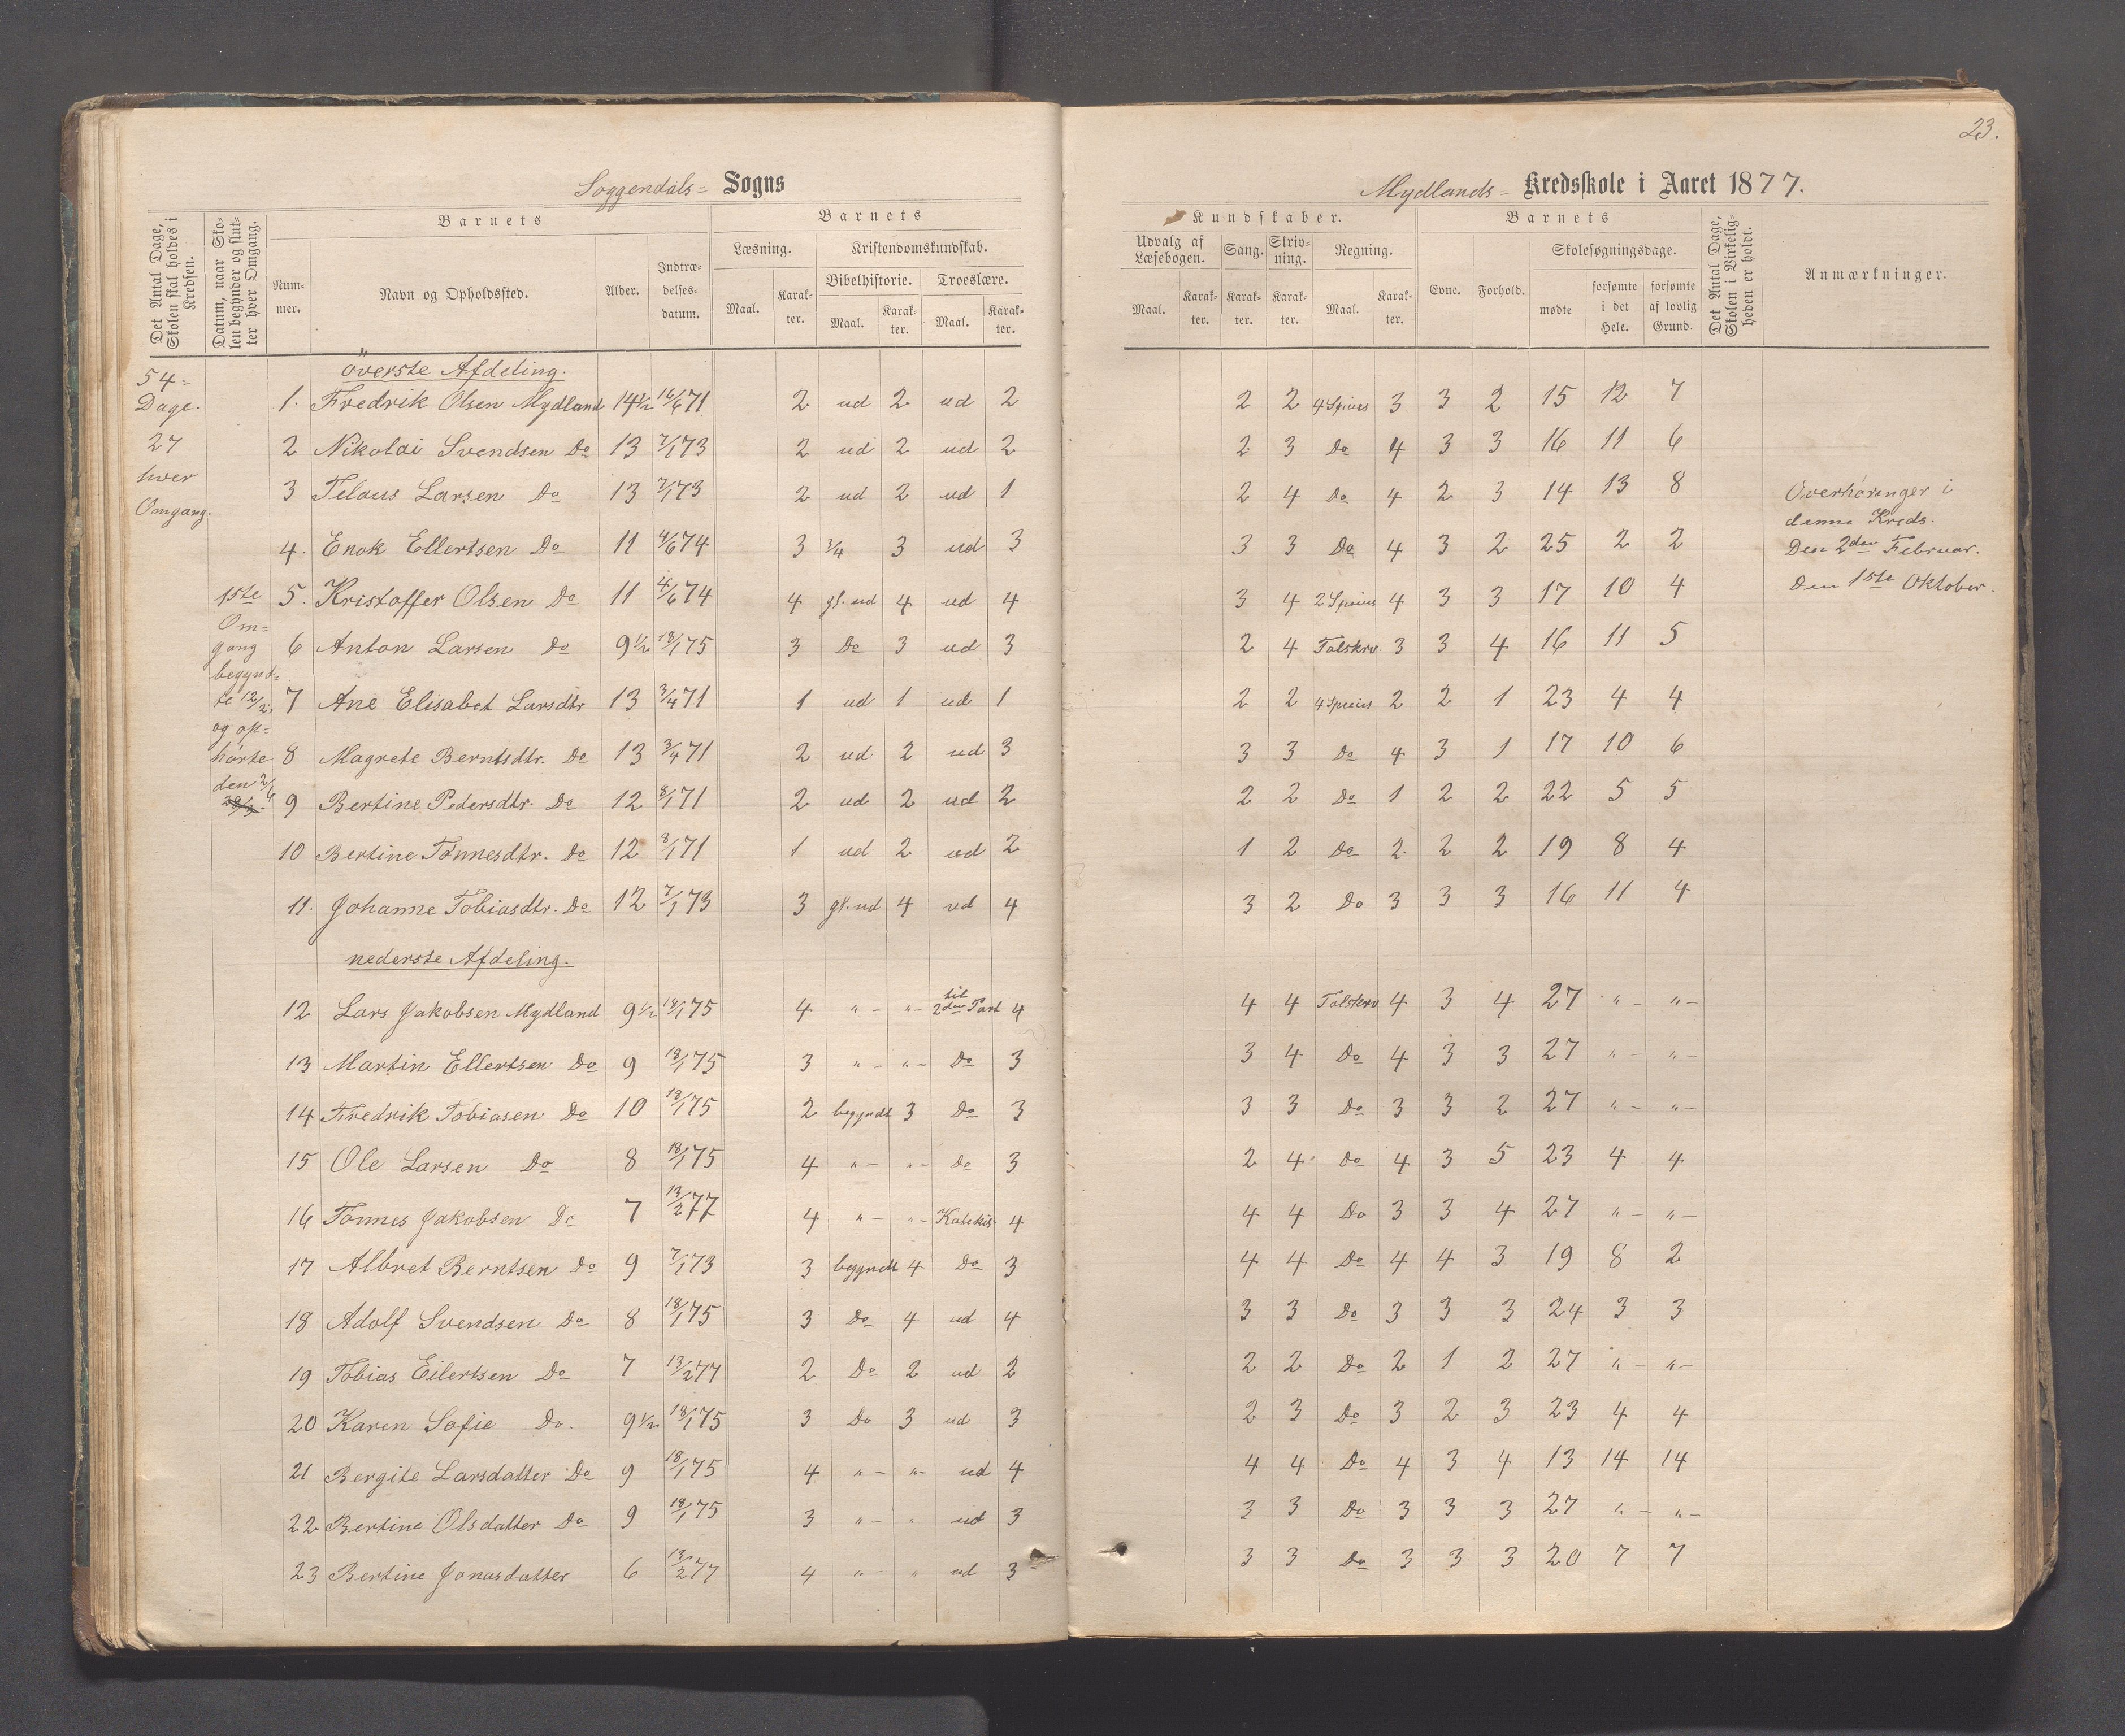 23.
Soggendals- Sogns
Mydlands- Kredsskole i Aaret 1877.
Det Antal Dage, Skolen skal holdes i Kredsen.
Datum, naar Skolen begynder og slutter hver Omgang.
Barnets
Nummer.
Navn og Opholdssted.
Alder.
Indtrædelsesdatum.
Barnets
Læsning.
Maal.
Karakter.
Kristendomskundskab.
Bibelhistorie.
Maal.
Karakter.
Troeslære.
Maal.
Karakter.
Kundskaber.
Udvalg af Læsebogen.
Maal.
Karakter.
Sang.
Karakter.
Skrivning.
Karakter.
Regning.
Maal.
Karakter.
Barnets
Evne.
Forhold.
Skolesøgningsdage.
mødte
forsømte i det Hele.
forsømte af lovlig Grund.
Det Antal Dage, Skolen i Virkeligheden er holdt.
Anmærkninger.
54-
Dage.
27
hver
Omgang.
1ste
Om-
gang
begynd-
te 12/2
og op-
hørte
den 2/6
överste Afdeling.
1. Fredrik Olsen Mydland 14½ 16/6 71 2 ud 2 ud 2 2 2 4 Spuies 3 3 2 15 12 7
2 Nikolai Svendsen Do 13 7/1 73 2 ud 2 ud 2 2 3 Do 4 3 3 16 11 6
3 Telaus Larsen Do 13 7/1 73 2 ud 2 ud 1 2 4 Do 4 2 3 14 13 8
4. Enok Ellertsen Do 11 4/6 74 3 3/4 3 ud 3 3 3 Do 4 3 2 25 2 2
5. Kristoffer Olsen Do 11 4/6 74 4 gl. ud 4 ud 4 3 4 2 Spuies 4 3 3 17 10 4
6 Anton Larsen Do 9½ 18/1 75 3 Do 3 ud 3 2 4 Talskrv. 3 3 4 16 11 5
7 Ane Elisabet Larsdtr 13 3/4 71 1 ud 1 ud 1 2 2 4 Spuies 2 2 1 23 4 4
8 Magrete Berntsdtr. Do 13 3/4 71 2 ud 2 ud 3 3 3 Do 4 3 1 17 10 6
9 Bertine Pedersdtr. Do 12 8/1 71 2 ud 2 ud 2 2 2 Do 1 2 2 22 5 5
10 Bertine Tönnesdtr. Do 12 8/1 71 1 ud 2 ud 2 1 2 Do 2 2 2 19 8 4
11. Johanne Tobiasdtr. Do 12 7/1 73 3 gl. ud 4 ud 4 3 2 Do 3 3 3 16 11 4
nederste Afdeling.
12 Lars Jakobsen Mydland 9½ 18/1 75 4 " - " - til 2den Part 4 4 4 Talskrv 4 3 4 27 " - " -
13 Martin Ellertsen Do 9 18/1 75 3 " - " - Do 3 3 4 Do 4 3 3 27 " - " -
14 Fredrik Tobiasen Do 10 18/1 75 2 begyndt 3 Do 3 3 3 Do 3 3 2 27 " - " -
15 Ole Larsen Do 8 18/1 75 4 " - " - Do 3 2 4 Do 4 3 5 23 4 4
16 Tönnes Jakobsen Do 7 13/2 77 4 " - " - Katekis 4 4 4 Do 3 3 4 27 " - " -
17 Albret Berntsen Do 9 7/1 73 3 begyndt 4 Do 3 4 4 Do 4 4 3 19 8 2
18 Adolf Svendsen Do 8 18/1 75 3 Do 4 ud 4 3 3 Do 3 3 3 24 3 3
19 Tobias Eilertsen Do 7 13/2 77 2 Do 2 ud 2 2 2 Do 2 1 2 27 " - " -
20 Karen Sofie Do. 9½ 18/1 75 3 Do 3 ud 3 2 3 Do 3 2 3 23 4 4
21 Bergite Larsdatter Do 9 18/1 75 4 " - " - ud 4 4 4 Do 4 3 4 13 14 14
22 Bertine Olsdatter Do 9 18/1 75 3 " - " ud 3 3 3 Do 3 3 3 27 " - " -
23 Bertine Jonasdatter 6 13/2 77 4 " - " ud 3 3 3 Do 3 3 3 20 7 7
Overhöringer i
denne Kreds.
Den 2den Februar.
den 1ste Oktober.